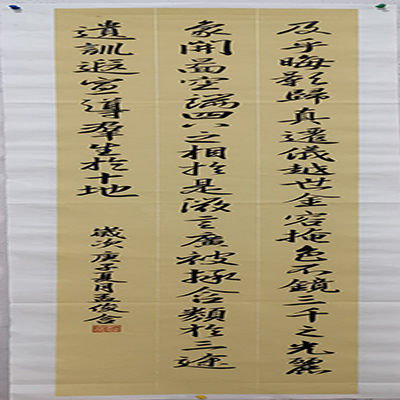 及乎晦影歸真遷儀越世金容掩色不鏡三千之光麗
象開圖空端四八之相於是微言廣被拯含類於三途
遺訓遐宣導群生於十地
歲次庚子夏月孟俊合